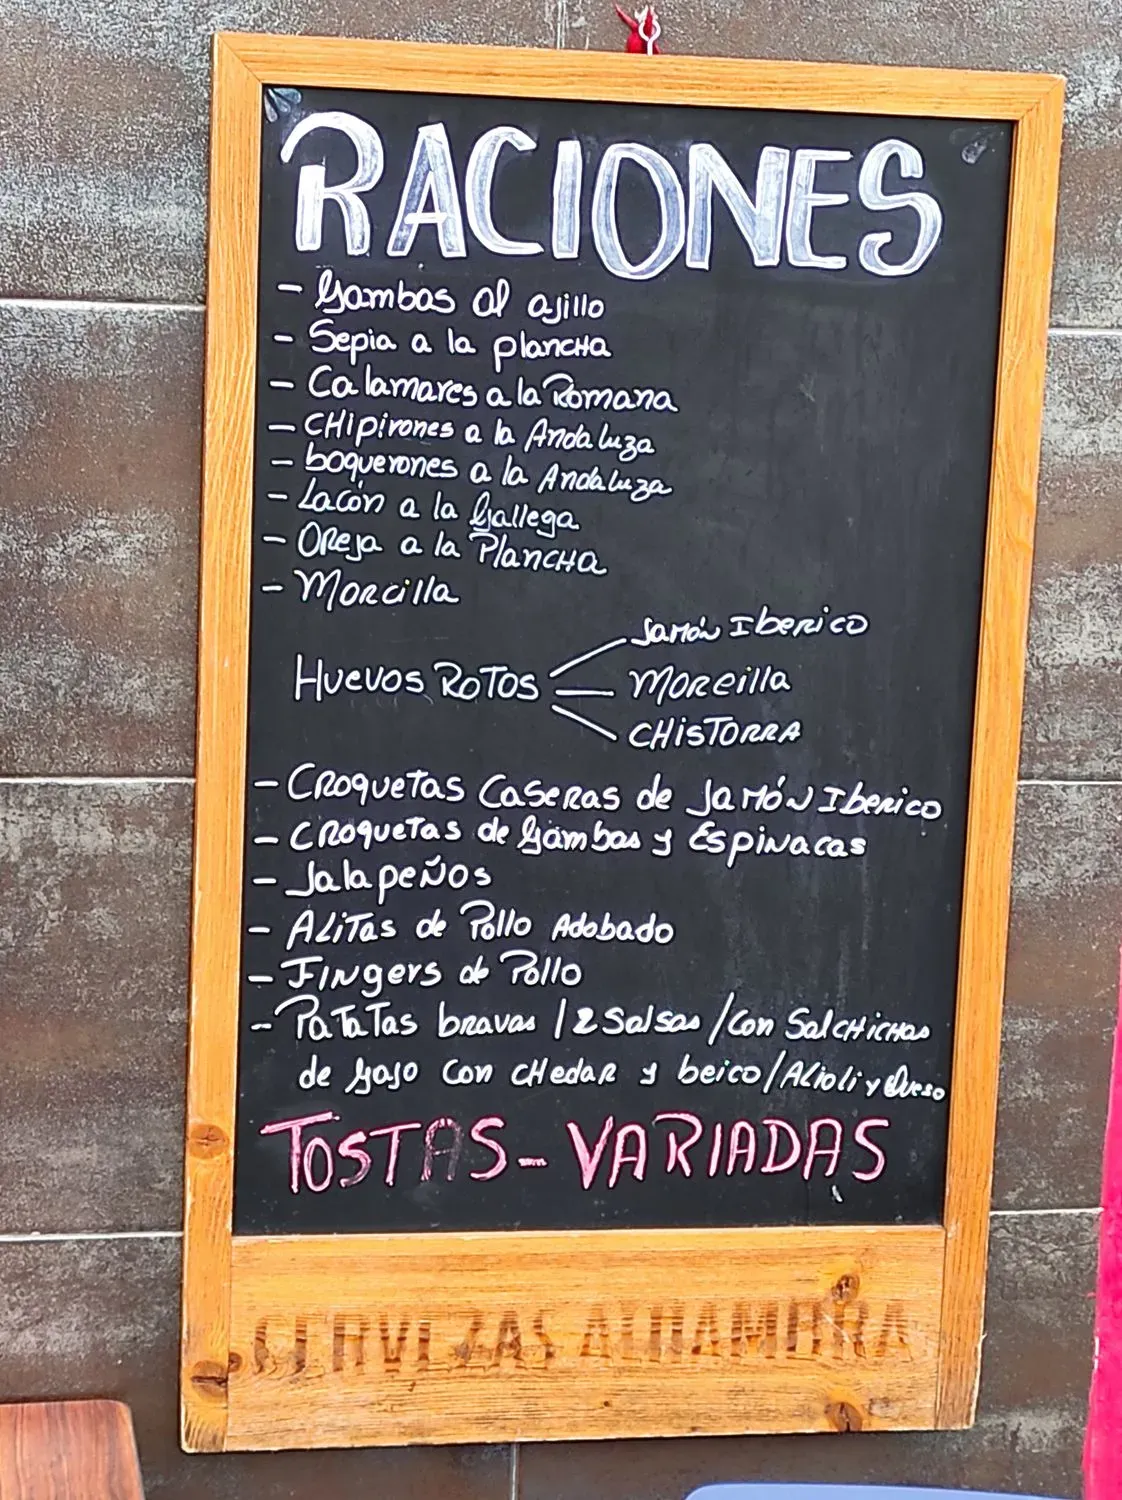 RACIONES
- Gambas al ajillo
- Sepia a la plancha
- Calamares a la Romana
- CHipirones a la Andaluza
- boquerones a la Andaluza
- Lacón a la Gallega
- Oreja a la Plancha
- Morcilla
Jamón Iberico
HUEVOS ROTOS
Morcilla
CHISTORRA
- Croquetas Caseras de Jamón Iberico
- Croquetas de Gambas y Espinacas
- Jalapeños
- Alitas de Pollo Adobado
- Fingers de Pollo
- Patatas bravas / 2 Salsas / Con Salchichas
de Gajo Con CHedar y beico / Alioli y Queso
TOSTAS - VARIADAS
CERVEZAS ALHAMBRA